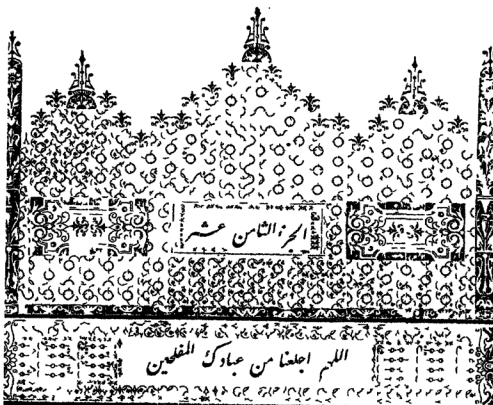 الجزء الثامن عشر
اللهم اجلعنا من عبادك المفلحين